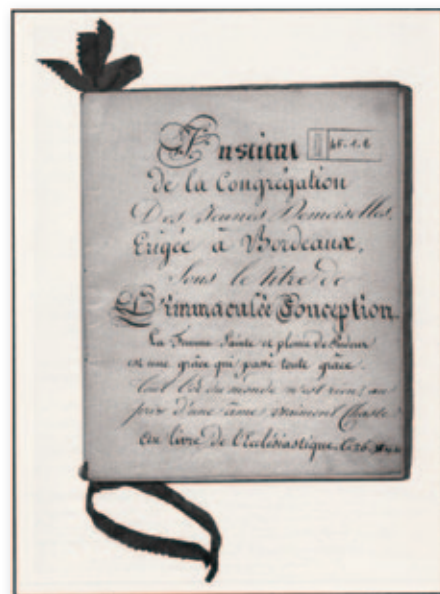 Institut
45.1.2
de la Congrégation
Des Jeunes Demoiselles,
Erigée à Bordeaux,
Sous le titre de
L'immaculée Conception.
La Femme Sainte et pleine de Pudeur
est une grâce qui passe toute grâce.
Tout l'or du monde n'est rien au
prix d'une âme vraiment Chaste.
au livre de l'Eclésiastique. C. 26.